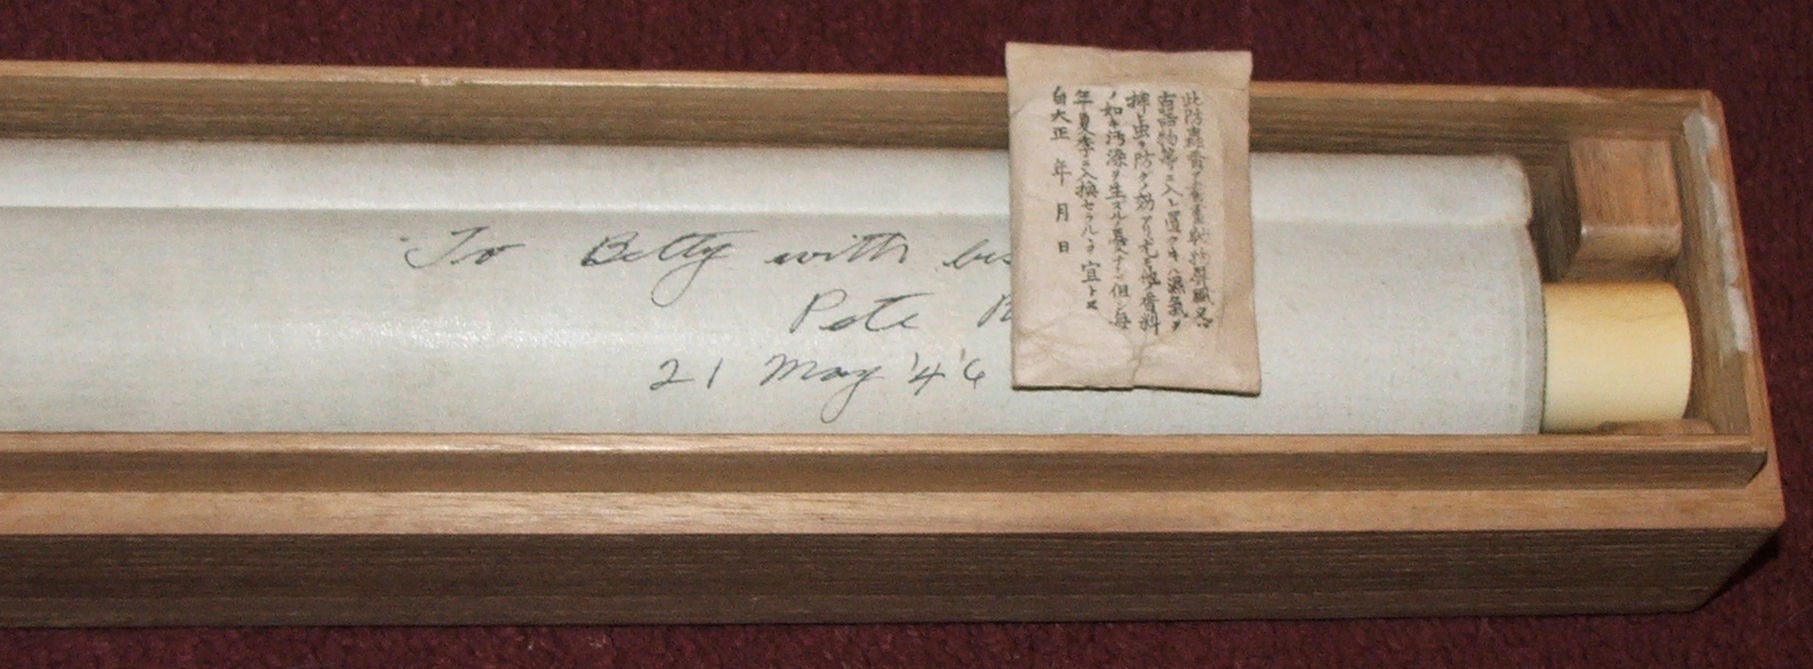 To Betty with
Pete
21 May '46
此防蟲香ヲ書畫軸物
物等ニ入レ置クキハ濕氣ヲ
拂ヒ虫ヲ防グノ効アリ尤モ他ノ香料
ノ如キ汚染ヲ生ズル憂ナシ但シ毎
年夏季ニ入換セラルヽヲ宜トス
自大正 年 月 日